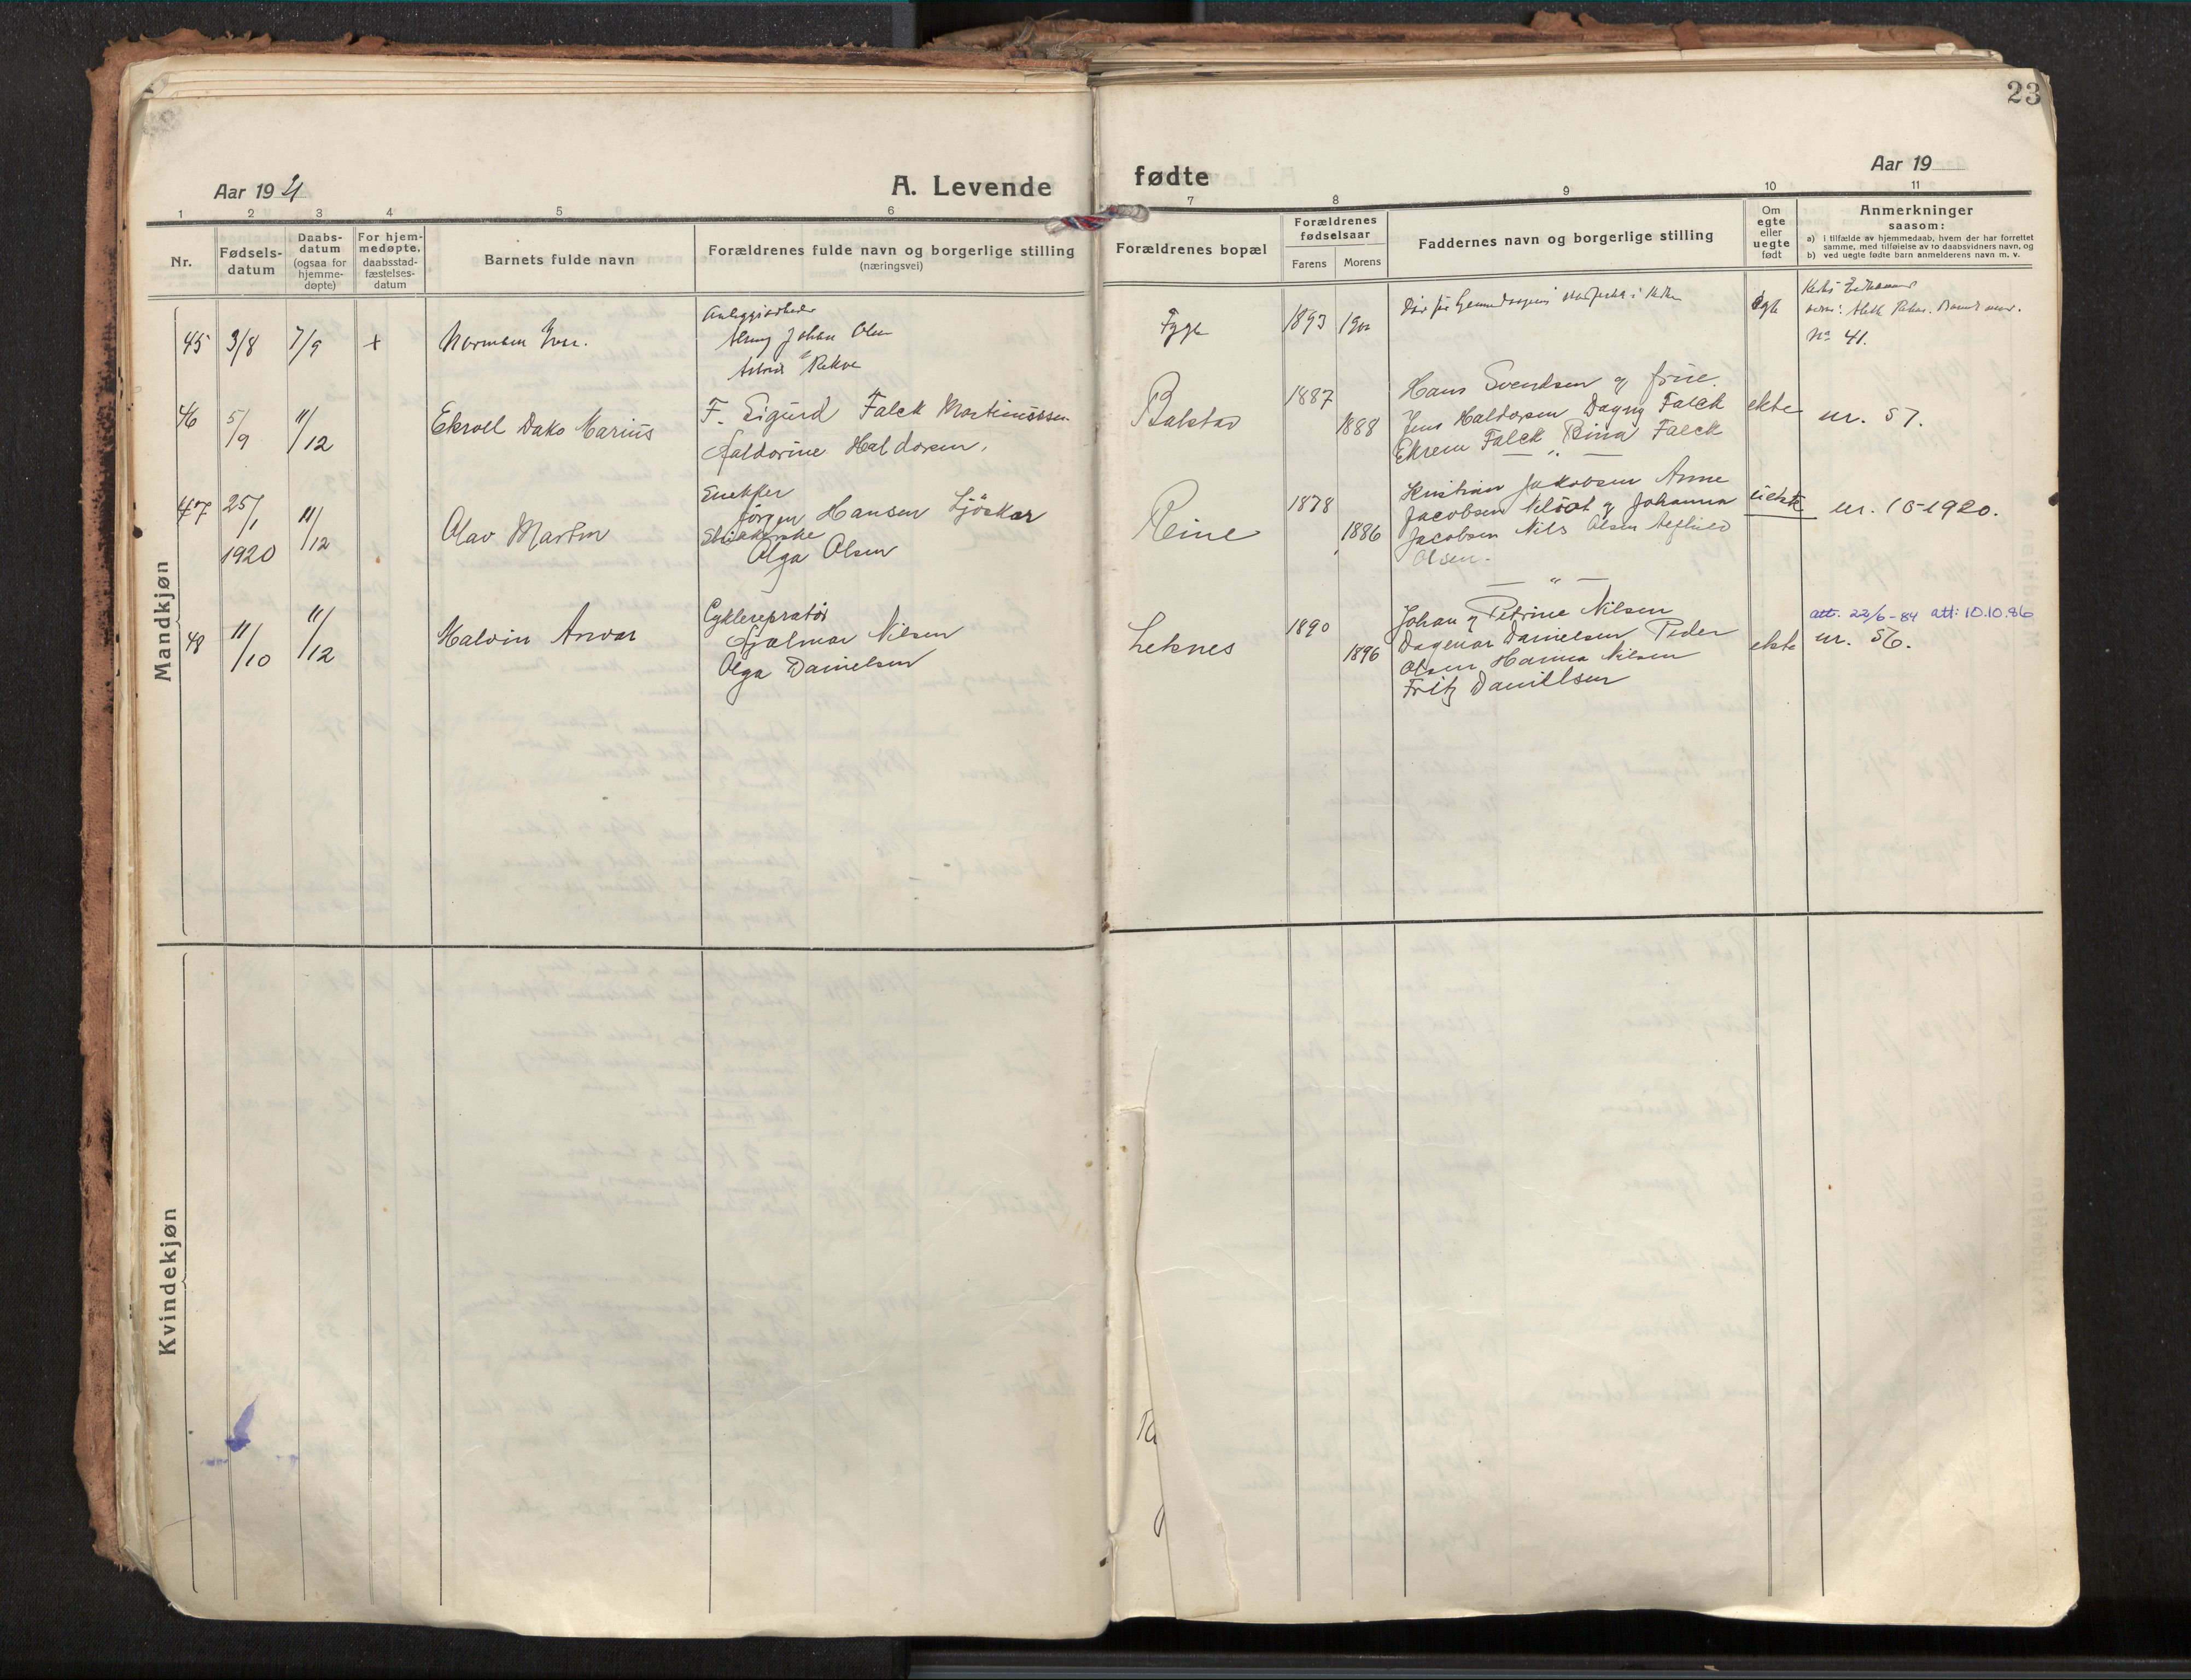 23
Aar 1921
A. Levende fødte
Aar 19
1 2 3 4 5 6 7 8 9 10 11
Nr.
Fødsels-
datum
Daabs-
datum
(ogsaa for
hjemme-
døpte)
For hjem-
medøpte.
daabsstad-
fæstelses-
datum
Barnets fulde navn
Forældrenes fulde navn og borgerlige stilling
(næringsvei)
Forældrenes bopæl
Forældrenes
fødselsaar
Farens
Morens
Faddernes navn og borgerlige stilling
Om
egte
eller
uegte
født
Anmerkninger
saasom:
a) i tilfælde av hjemmedaab, hvem der har forrettet
samme, med tilføielse av to daabsvidners navn, og
b) ved uegte fødte barn anmelderens navn m. v.
Mandkjøn
45 3/8 7/9 +
Norman
Anlægsarbeider
Johan Olsen
Rekve
Fygle
1893
Død før
Egte
No 41.
46 5/9 11/12
Ekroll Dako Marius
F. Sigurd Falck Martinussen
Haldorine Haldorsen.
Balstad
1887
1888
Hans Svendsen og frue.
Jens Haldorsen Dagny Falck
Ekrem Falck Bina Falck
ekte
nr. 57.
47 25/1 11/12
1920
Olav Martin
Snekker
Jörgen Hansen
Olga Olsen
Reine
1878
1886
Kristian Jakobsen Anne
Jacobsen og Johanna
Jacobsen Nils Olsen
Olsen.
uekte
nr. 15-1920.
— " —
48 11/10 11/12
Halvin Anvar
Cyklereparatör
Hjalmar Nilsen
Olga Danielsen
Leknes
1890
1896
Johan og Petrine Nilsen
Dagmar Danielsen Peder
Olsen Hanna Nilsen
Fritz Daniellsen
ekte
att. 22/6-84 att: 10.10.86
nr. 56.
Kvindekjøn